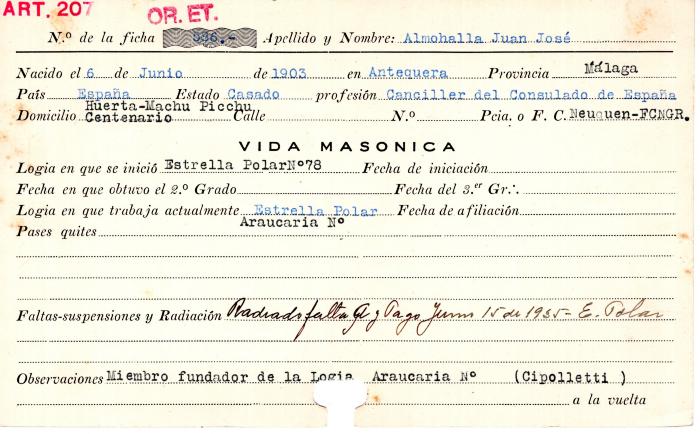 ART. 207
OR. ET.
N.º de la ficha 536.- Apellido y Nombre: Almohalla Juan José
Nacido el 6 de Junio de 1903 en Antequera Provincia Málaga
País España Estado Casado profesión Canciller del Consulado de España
Huerta-Machu Picchu
Domicilio Centenario Calle N.º Pcia. o F. C. Neuquen-FCNGR.
VIDA MASONICA
Logia en que se inició Estrella PolarNº78 Fecha de iniciación
Fecha en que obtuvo el 2.º Grado Fecha del 3.er Gr∴
Logia en que trabaja actualmente Estrella Polar Fecha de afiliación
Araucaria Nº
Pases quites
Faltas-suspensiones y Radiación Radiado falta A y Pago Junio 15 de 1935- E. Polar
Observaciones Miembro fundador de la Logia Araucaria Nº (Cipolletti )
a la vuelta